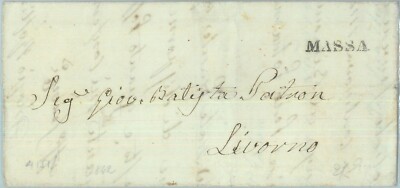 MASSA
Sigr Giov. Batista Patron
Livorno